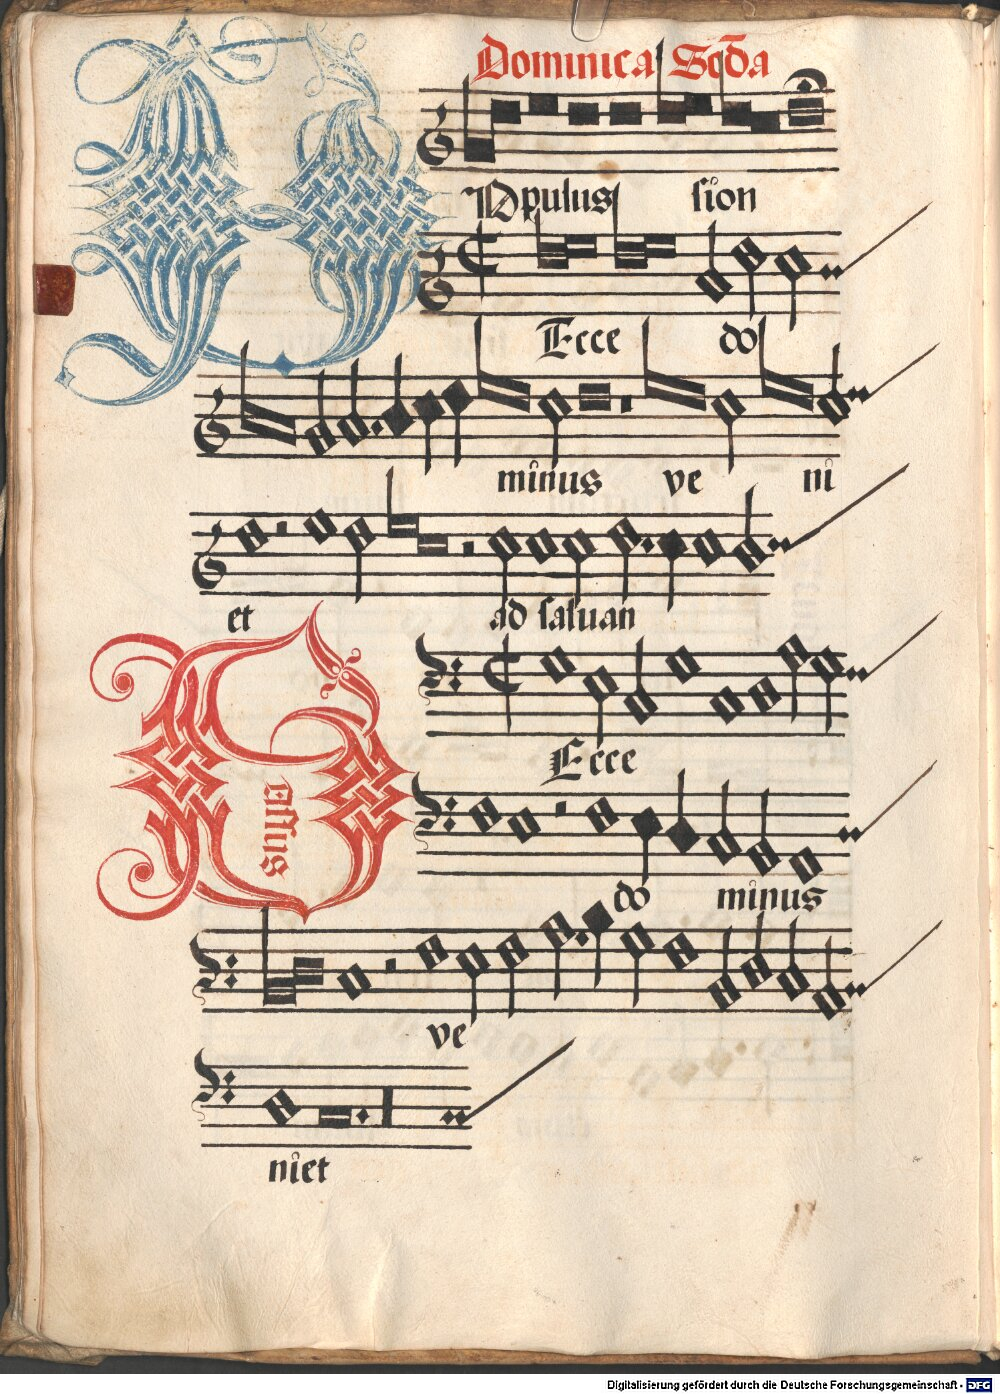 Dominica Scd̄a
Populus sion
Ecce do
minus ve ni
et ad saluan
Bassus
Ecce
do minus
ve
niet
Digitalisierung gefördert durch die Deutsche Forschungsgemeinschaft - DFG